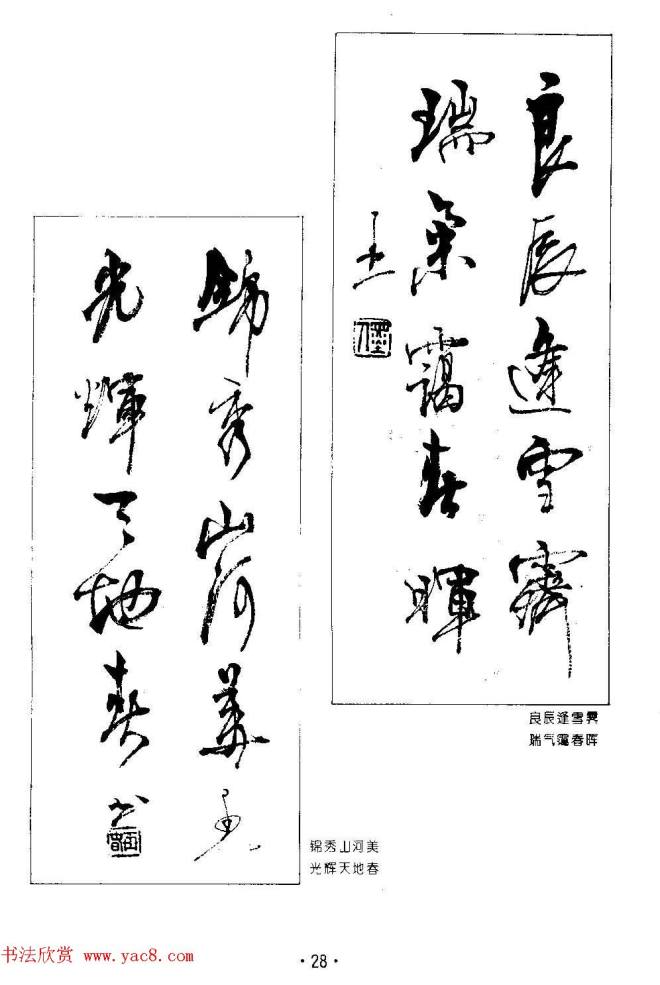 良辰逢雪霁
瑞气霭春晖
王
良辰逢雪霁
瑞气霭春晖
锦秀山河美
光辉天地春
书
锦秀山河美
光辉天地春
·28·
书法欣赏 www.yac8.com